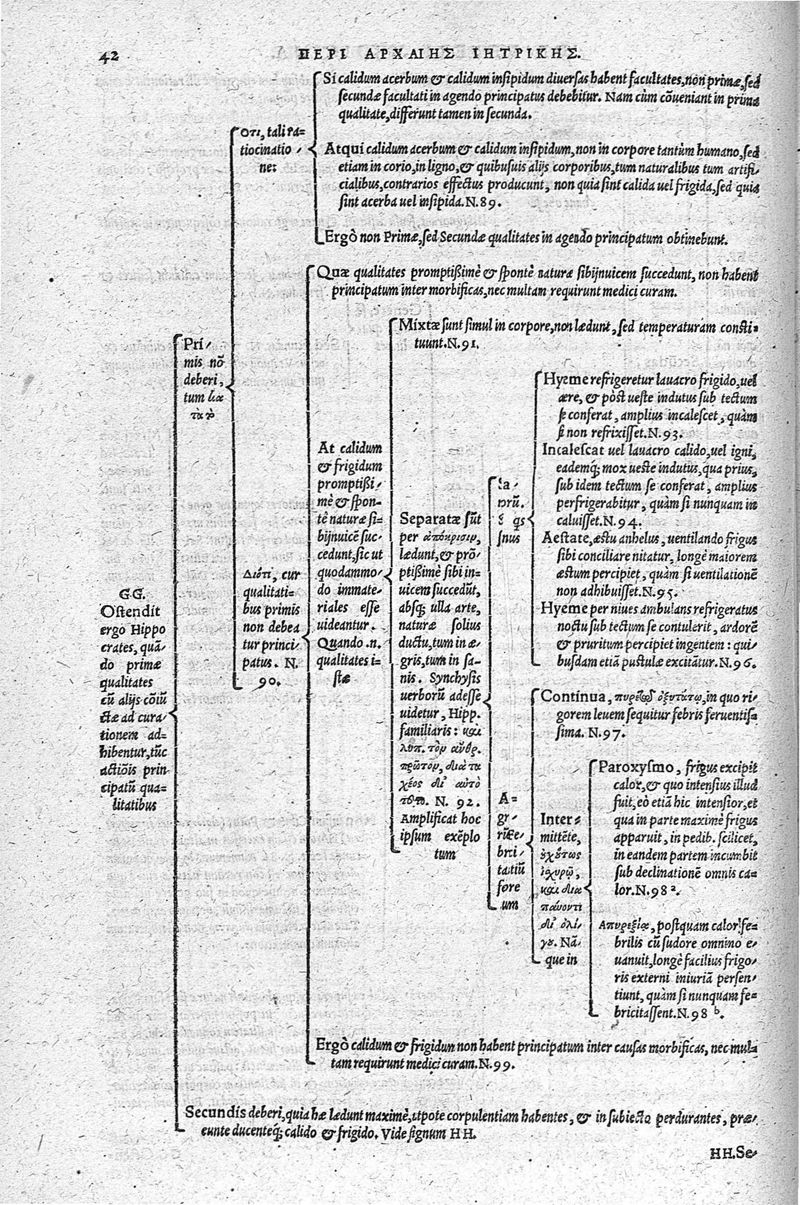 42
ΠΕΡΙ ΑΡΧΑΙΗΣ ΙΗΤΡΙΚΗΣ.
G.G.
Ostendit
ergo Hippo
crates, quã/
do primæ
qualitates
cũ alijs cõiũ
ctæ ad cura
tionem ad=
hibentur, tũc
actiõis prin/
cipatũ qua=
litatibus
Pri/
mis nõ
deberi,
tum δια
τὰ τὸ
Ὅτι, tali ra=
tiocinatio /
ne:
Si calidum acerbum & calidum insipidum diuersas habent facultates, non primæ, sed
secundæ facultati in agendo principatus debebitur. Nam cùm cõueniant in prima
qualitate, differunt tamen in secunda.
Atqui calidum acerbum & calidum insipidum, non in corpore tantùm humano, sed
etiam in corio, in ligno, & quibusuis alijs corporibus, tum naturalibus tum artifi/
cialibus, contrarios effectus producunt, non quia sint calida uel frigida, sed quia
sint acerba uel insipida. N. 89.
Ergò non Primæ, sed Secundæ qualitates in agendo principatum obtinebunt.
Διότι, cur
qualitati=
bus primis
non debea
tur princi/
patus. N.
90.
Quæ qualitates promptißimè & spontè naturæ sibijnuicem succedunt, non habent
principatum inter morbificas, nec multam requirunt medici curam.
At calidum
& frigidum
promptißi/
mè & spon=
tè naturæ si=
bijnuicẽ suc/
cedunt, sic ut
quodammo/
do immate/
riales esse
uideantur.
Quando .n.
qualitates i=
stæ
Mixtæ sunt simul in corpore, non lædunt, sed temperaturam consti=
tuunt. N. 91.
Separatæ sũt
per ἀπόκρισιν,
lædunt, & prõ/
ptißimè sibi in=
uicem succedũt,
absq; ulla arte,
naturæ solius
ductu, tum in æ
gris, tum in sa/
nis. Synchysis
uerborũ adesse
uidetur, Hipp.
familiaris: καὶ
λυπ. τὸν ἄνθρ.
πρῶτον, διὰ τα
χέος δι' αὐτὸ
N. 92.
Amplificat hoc
ipsum exẽplo
tum
Sa/
norũ.
Si qs
sanus
Hyeme refrigeretur lauacro frigido, uel
aëre, & pòst ueste indutus sub tectum
se conferat, amplius incalescet, quàm
si non refrixisset. N. 93.
Incalescat uel lauacro calido, uel igni,
eademq; mox ueste indutus, qua prius,
sub idem tectum se conferat, amplius
perfrigerabitur, quàm si nunquam in
caluisset. N. 94.
Aestate, æstu anhelus, uentilando frigus
sibi conciliare nitatur, longè maiorem
æstum percipiet, quàm si uentilationẽ
non adhibuisset. N. 95.
Hyeme per niues ambulans refrigeratus
noctu sub tectum se contulerit, ardorẽ
& pruritum percipiet ingentem: qui/
busdam etiã pustulæ excitãtur. N. 96.
A=
gr/
rũ fe=
bri
tatiũ
fore
um
Continua, πυρετῷ ὀξυτάτῳ, in quo ri/
gorem leuem sequitur febris feruentis=
sima. N. 97.
Inter/
mittẽte,
ἰχυρῷ,
καὶ δια
παύοντι
δι' ὀλί/
γου. Nã/
que in
Paroxysmo, frigus excipit
calor, & quo intensius illud
fuit, eò etiã hic intensior, et
qua in parte maximè frigus
apparuit, in pedib. scilicet,
in eandem partem incumbit
sub declinationẽ omnis ca=
lor. N. 98 a.
Ἀπυρεξίᾳ, postquam calor fe=
brilis cũ sudore omnino e/
uanuit, longè facilius frigo/
ris externi iniuriã persen/
tiunt, quàm si nunquam fe=
bricitassent. N. 98 b.
Ergò calidum & frigidun non habent principatum inter causas morbificas, nec mul=
tam requirunt medici curam. N. 99.
Secundis deberi, quia hæ lædunt maximè, utpote corpulentiam habentes, & in subiecto perdurantes, præ=
eunte ducenteq; calido & frigido. Vide signum HH.
HH. Se/